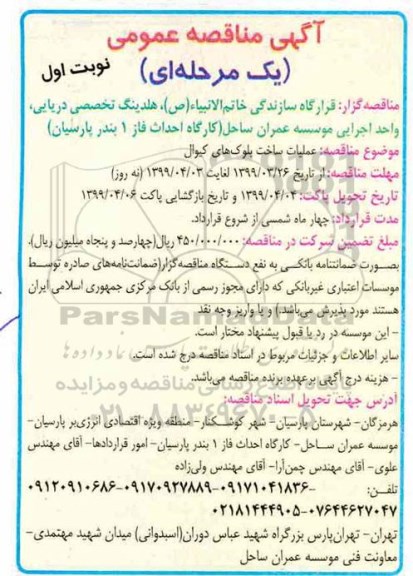 آگهی مناقصه عمومی
(یک مرحله‌ای)
نوبت اول
مناقصه‌گزار: قرارگاه سازندگی خاتم‌الانبیاء(ص)، هلدینگ تخصصی دریایی،
واحد اجرایی موسسه عمران ساحل(کارگاه احداث فاز ۱ بندر پارسیان)
موضوع مناقصه: عملیات ساخت بلوک‌های کیوال
مهلت مناقصه: از تاریخ ۱۳۹۹/۰۳/۲۶ لغایت ۱۳۹۹/۰۴/۰۳ (نه روز)
تاریخ تحویل پاکت: ۱۳۹۹/۰۴/۰۴ و تاریخ بازگشایی پاکت ۱۳۹۹/۰۴/۰۶
مدت قرارداد: چهار ماه شمسی از شروع قرارداد.
مبلغ تضمین شرکت در مناقصه: ۴۵۰/۰۰۰/۰۰۰ ریال(چهارصد و پنجاه میلیون ریال)،
بصورت ضمانتنامه بانکی به نفع دستگاه مناقصه‌گزار(ضمانت‌نامه‌های صادره توسط
موسسات اعتباری غیربانکی که دارای مجوز رسمی از بانک مرکزی جمهوری اسلامی ایران
هستند مورد پذیرش می‌باشد) و یا واریز وجه نقد
- این موسسه در رد یا قبول پیشنهاد مختار است.
سایر اطلاعات و جزئیات مربوط در اسناد مناقصه درج شده است.
- هزینه درج آگهی برعهده برنده مناقصه می‌باشد.
آدرس جهت تحویل اسناد مناقصه:
هرمزگان- شهرستان پارسیان- شهر کوشکنار- منطقه ویژه اقتصادی انرژی‌بر پارسیان-
موسسه عمران ساحل- کارگاه احداث فاز ۱ بندر پارسیان- امور قراردادها- آقای مهندس
علوی- آقای مهندس چمن‌آرا- آقای مهندس ولی‌زاده
تلفن: ۰۹۱۷۱۰۴۱۸۳۶-۰۹۱۷۰۹۲۷۸۸۹-۰۹۱۲۰۹۱۰۶۸۶-
۰۷۶۴۴۶۲۷۰۴۷-۰۲۱۸۱۴۴۴۹۰۵
تهران- تهران‌پارس بزرگراه شهید عباس دوران(اسبدوانی) میدان شهید مهتمدی-
معاونت فنی موسسه عمران ساحل
ParsNamadData
پایگاه اطلاع رسانی مناقصه و مزایده
۰۲۱-۸۸۳۴۹۶۷۰-۵